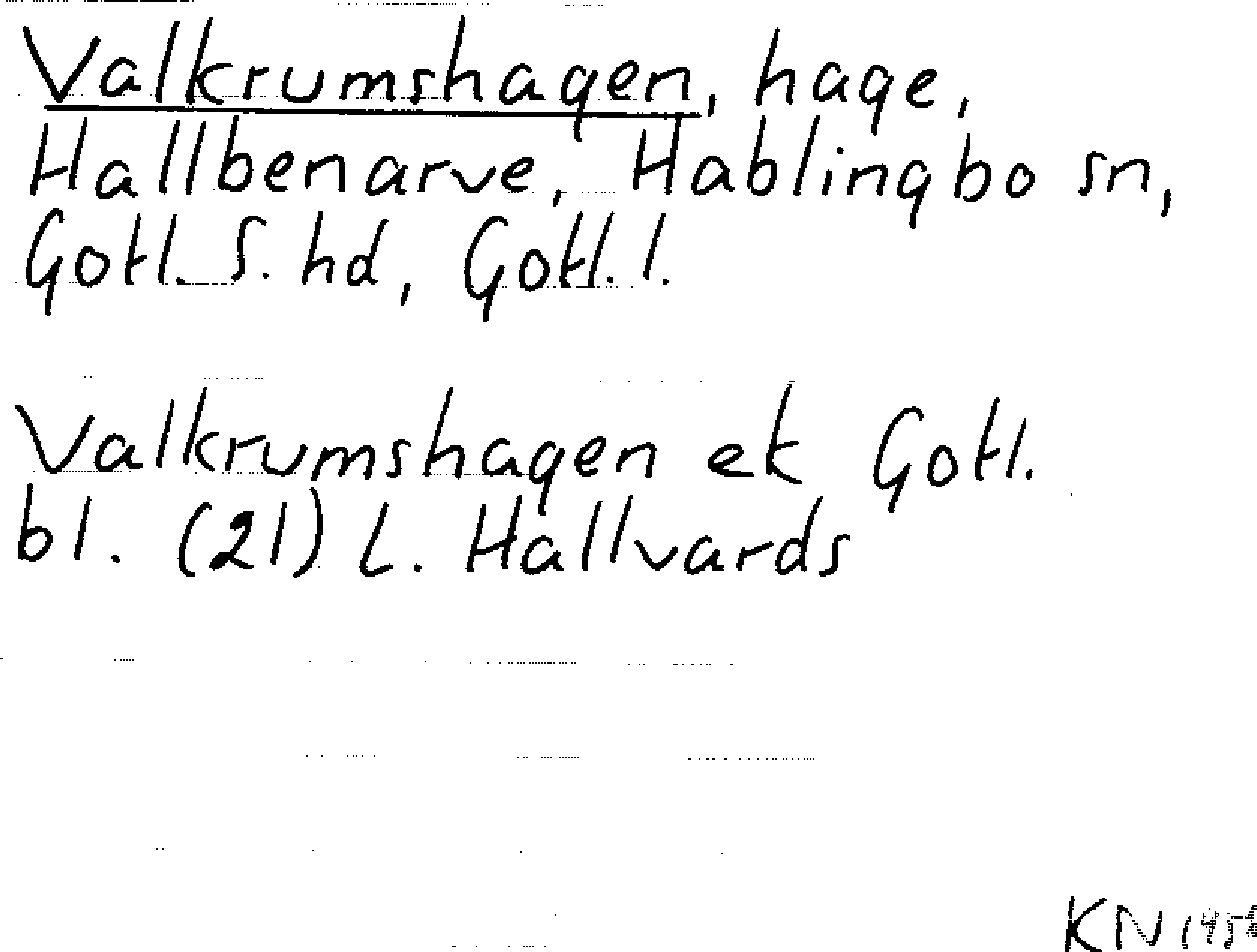 Valkrumshagen, hage,
Hallbenarve, Hablingbo sn,
Gotl. S. hd, Gotl. l.
Valkrumshagen ek Gotl.
bl. (21) L. Hallvards
KN